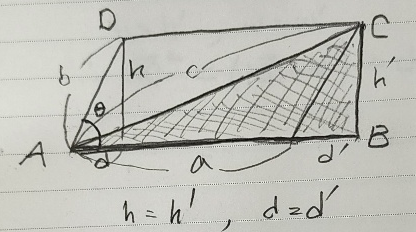 D
C
b
h
c
h'
θ
A
d
a
d'
B
h = h' , d = d'